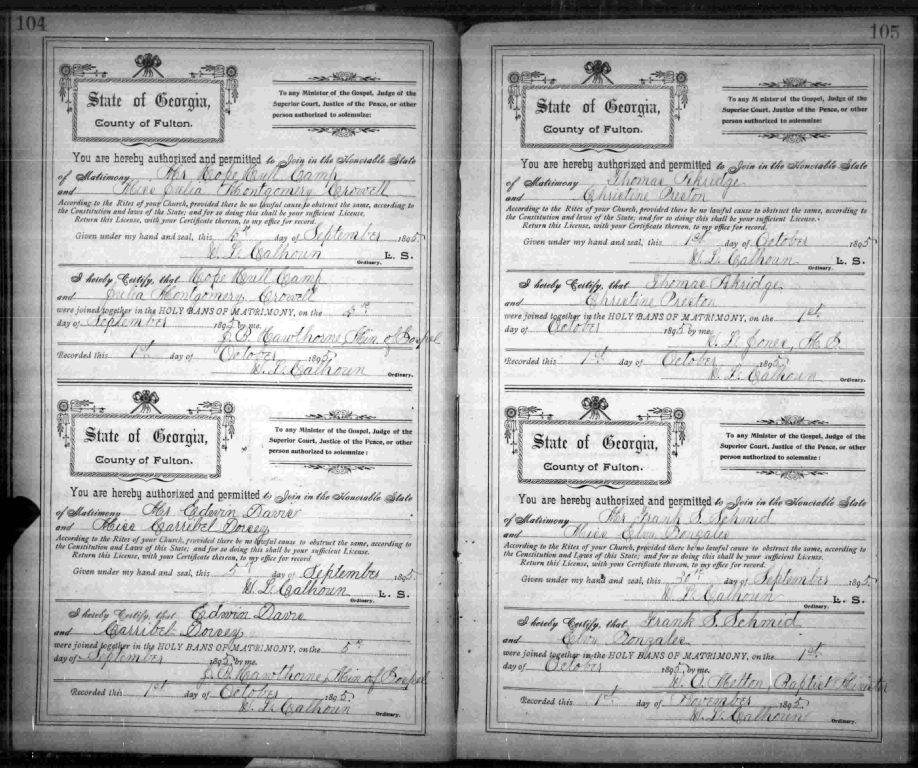 104
State of Georgia,
County of Fulton.
To any Minister of the Gospel, Judge of the
Superior Court, Justice of the Peace, or other
person authorized to solemnize:
You are hereby authorized and permitted to Join in the Honorable State
of Matrimony Mr Hope Hull Camp
and Miss Julia Montgomery Crowell
According to the Rites of your Church, provided there be no lawful cause to obstruct the same, according to
the Constitution and laws of the State; and for so doing this shall be your sufficient License.
Return this License, with your Certificate thereon, to my office for record.
Given under my hand and seal, this day of September 1895
W. L. Calhoun L. S.
Ordinary.
I hereby Certify, that Hope Hull Camp
and Julia Montgomery Crowell
were joined together in the HOLY BANS OF MATRIMONY, on the 5th
day of September 1895 by me.
Hawthorne, Min of Gospel
Recorded this 1st day of October 1895
W. L. Calhoun
Ordinary.
State of Georgia,
County of Fulton.
To any Minister of the Gospel, Judge of the
Superior Court, Justice of the Peace, or other
person authorized to solemnize:
You are hereby authorized and permitted to Join in the Honorable State
of Matrimony Mr Edwin Davis
and Miss Carribel Dorsey
According to the Rites of your Church, provided there be no lawful cause to obstruct the same, according to
the Constitution and Laws of this State; and for so doing this shall be your sufficient License.
Return this License, with your Certificate thereon, to my office for record
Given under my hand and seal, this 5th day of September 1895
W. L. Calhoun L. S.
Ordinary.
I hereby Certify, that Edwin Davis
and Carribel Dorsey
were joined together in the HOLY BANS OF MATRIMONY, on the 5th
day of September 1895 by me.
Hawthorne, Min of Gospel
Recorded this 1st day of October 1895
W. L. Calhoun
Ordinary.
105
State of Georgia,
County of Fulton.
To any Minister of the Gospel, Judge of the
Superior Court, Justice of the Peace, or other
person authorized to solemnize:
You are hereby authorized and permitted to Join in the Honorable State
of Matrimony Thomas
and Christine Preston
According to the Rites of your Church, provided there be no lawful cause to obstruct the same, according to
the Constitution and laws of this State; and for so doing this shall be your sufficient License.
Return this License, with your Certificate thereon, to my office for record.
Given under my hand and seal, this 1st day of October 1895
W. L. Calhoun L. S.
Ordinary.
I hereby Certify, that Thomas
and Christine Preston
were joined together in the HOLY BANS OF MATRIMONY, on the 1st
day of October 1895 by me.
L. Jones,
Recorded this 1st day of October 1895
W. L. Calhoun
Ordinary.
State of Georgia,
County of Fulton.
To any Minister of the Gospel, Judge of the
Superior Court, Justice of the Peace, or other
person authorized to solemnize:
You are hereby authorized and permitted to Join in the Honorable State
of Matrimony Mr Frank S. Schmid
and Miss Gonzales
According to the Rites of your Church, provided there be no lawful cause to obstruct the same, according to
the Constitution and Laws of this State; and for so doing this shall be your sufficient License.
Return this License, with your Certificate thereon, to my office for record.
Given under my hand and seal, this 30th day of September 1895
W. L. Calhoun L. S.
Ordinary.
I hereby Certify, that Frank S. Schmid
and Gonzales
were joined together in the HOLY BANS OF MATRIMONY, on the 1st
day of October 1895 by me.
Baptist Minister
Recorded this 1st day of November 1895
W. L. Calhoun
Ordinary.